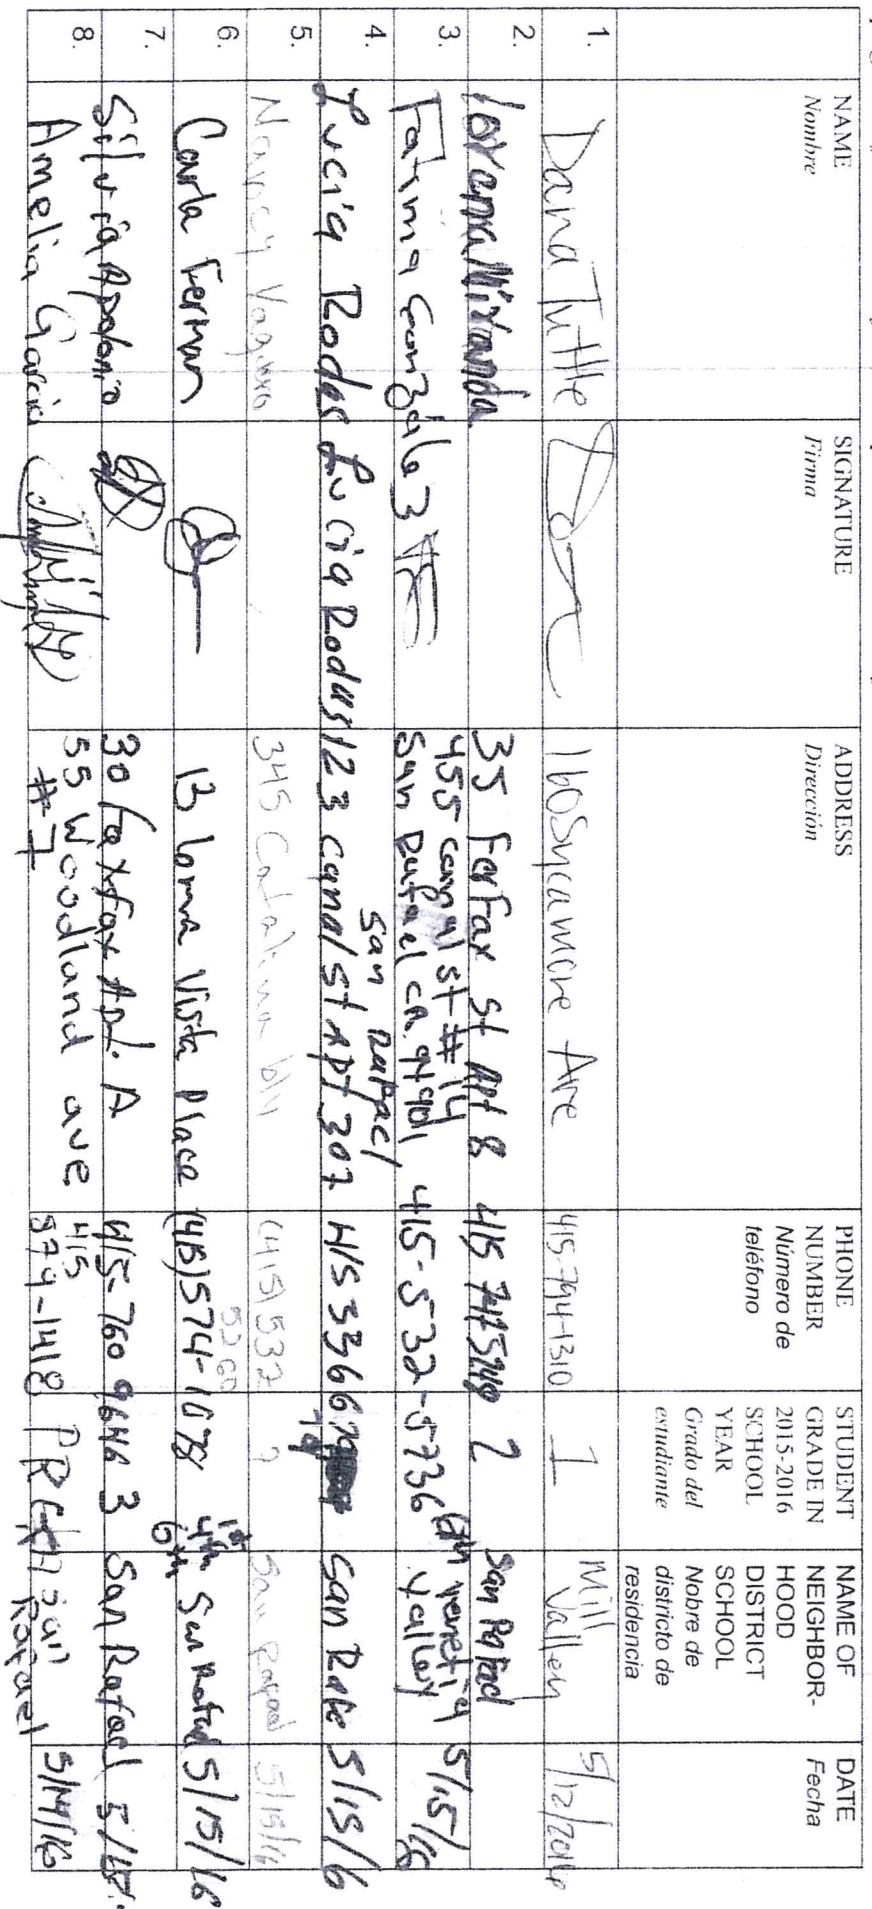 NAME
Nombre
SIGNATURE
Firma
ADDRESS
Dirección
PHONE
NUMBER
Número de
teléfono
STUDENT
GRADE IN
2015-2016
SCHOOL
YEAR
Grado del
estudiante
NAME OF
NEIGHBOR-
HOOD
DISTRICT
SCHOOL
Nobre de
districto de
residencia
DATE
Fecha
1.
Dana Tuttle
160 Sycamore Ave
415-794-1310
1
Mill
Valley
5/12/2016
2.
Miranda
35 Forfax St Apt 8
415
2
San Rafael
3.
Fatima Gonzalez
455 canal st # 14
San Rafael ca. 94901
415-532-5736
6th
Valley
5/15/16
4.
Lucia Rodas
Lucia Rodas
123 canal st Apt 307
San Rafael
415 336
San Rafe
5/15/16
5.
Nancy
345 Catalina blv
(415) 532
5260
San Rafael
5/15/16
6.
Carla Ferman
13 loma Vista Place
(415) 574-1078
1st
4th
6th
San Rafael
5/15/16
7.
Silvia Apolonio
30 faxfax Apt. A
415-760 9646
3
San Rafael
8.
Amelia Garcia
55 Woodland ave
#7
415
574-1418
San
Rafael
5/14/16